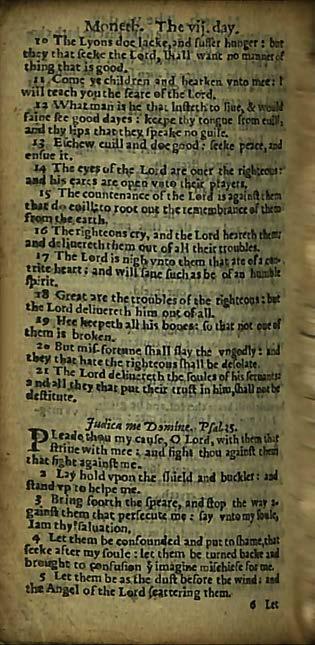 Moneth. The vij. day.
10 The Lyons doe lacke, and suffer hunger : but
they that seeke the Lord, shall want no manner of
thing that is good.
11 Come ye children and hearken vnto mee: I
will teach you the feare of the Lord.
12 What man is he that lusteth to liue, & would
faine see good dayes : keepe thy tongue from euill,
and thy lips that they speake no guile.
13 Eschew euill and doe good : seeke peace, and
ensue it.
14 The eyes of the Lord are ouer the righteous:
and his eares are open vnto their prayers,
15 The countenance of the Lord is against them
that do euill: to root out the remembrance of them
from the earth.
16 The righteous cry, and the Lord heareth them:
and deliuereth them out of all their troubles.
17 The Lord is nigh vnto them that are of a con-
trite heart : and will saue such as be of an humble
spirit.
18 Great are the troubles of the righteous : but
the Lord deliuereth him out of all.
19 Hee keepeth all his bones: so that not one of
them is broken.
20 But misfortune shall slay the vngodly : and
they that hate the righteous shall be desolate.
21 The Lord deliuereth the soules of his seruants:
and all they that put their trust in him, shall not be
destitute.
Judica me Domine. Psal.35.
PLeade thou my cause, O Lord, with them that
striue with mee : and fight thou against them
that fight against me.
2 Lay hold vpon the shield and buckler: and
stand vp to helpe me.
3 Bring foorth the speare, and stop the way a-
gainst them that persecute me : say vnto my soule,
I am thy saluation.
4 Let them be confounded and put to shame, that
seeke after my soule : let them be turned backe and
brought to confusion ẏ imagine mischiefe for me.
5 Let them be as the dust before the wind: and
the Angel of the Lord scattering them.
6 Let